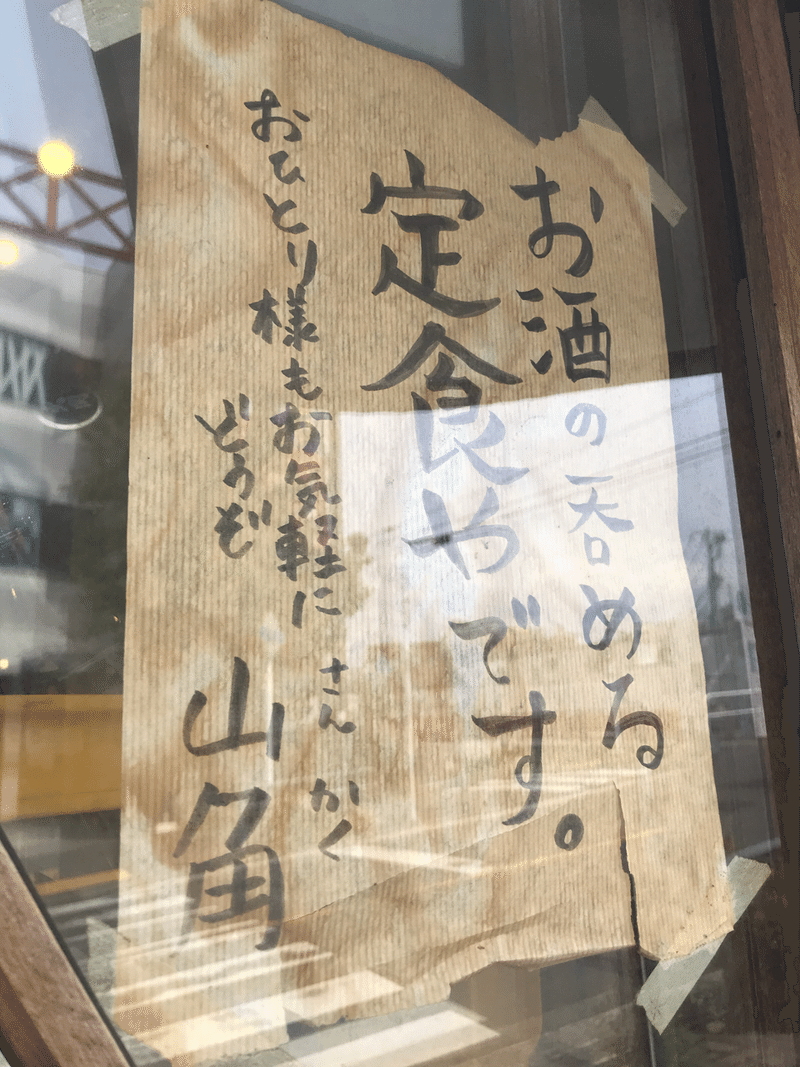 お酒の呑める
定食やです。
おひとり様もお気軽に
どうぞ
さんかく
山角